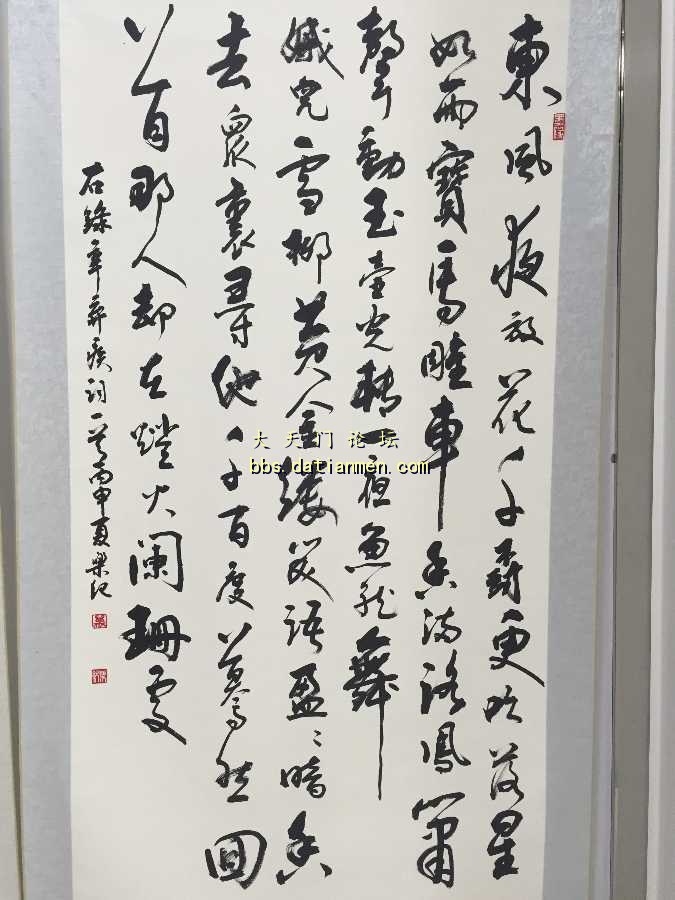 東風夜放花千樹更吹落星
如雨寶馬雕車香满路鳳簫
聲動玉壺光轉一夜魚龍舞
娥兒雪柳黄金縷笑語盈〻暗香
去眾裏尋他千百度驀然回
首那人却在燈火闌珊處
右錄辛棄疾词一首丙申夏樂记
大天门论坛
bbs.datianmen.com